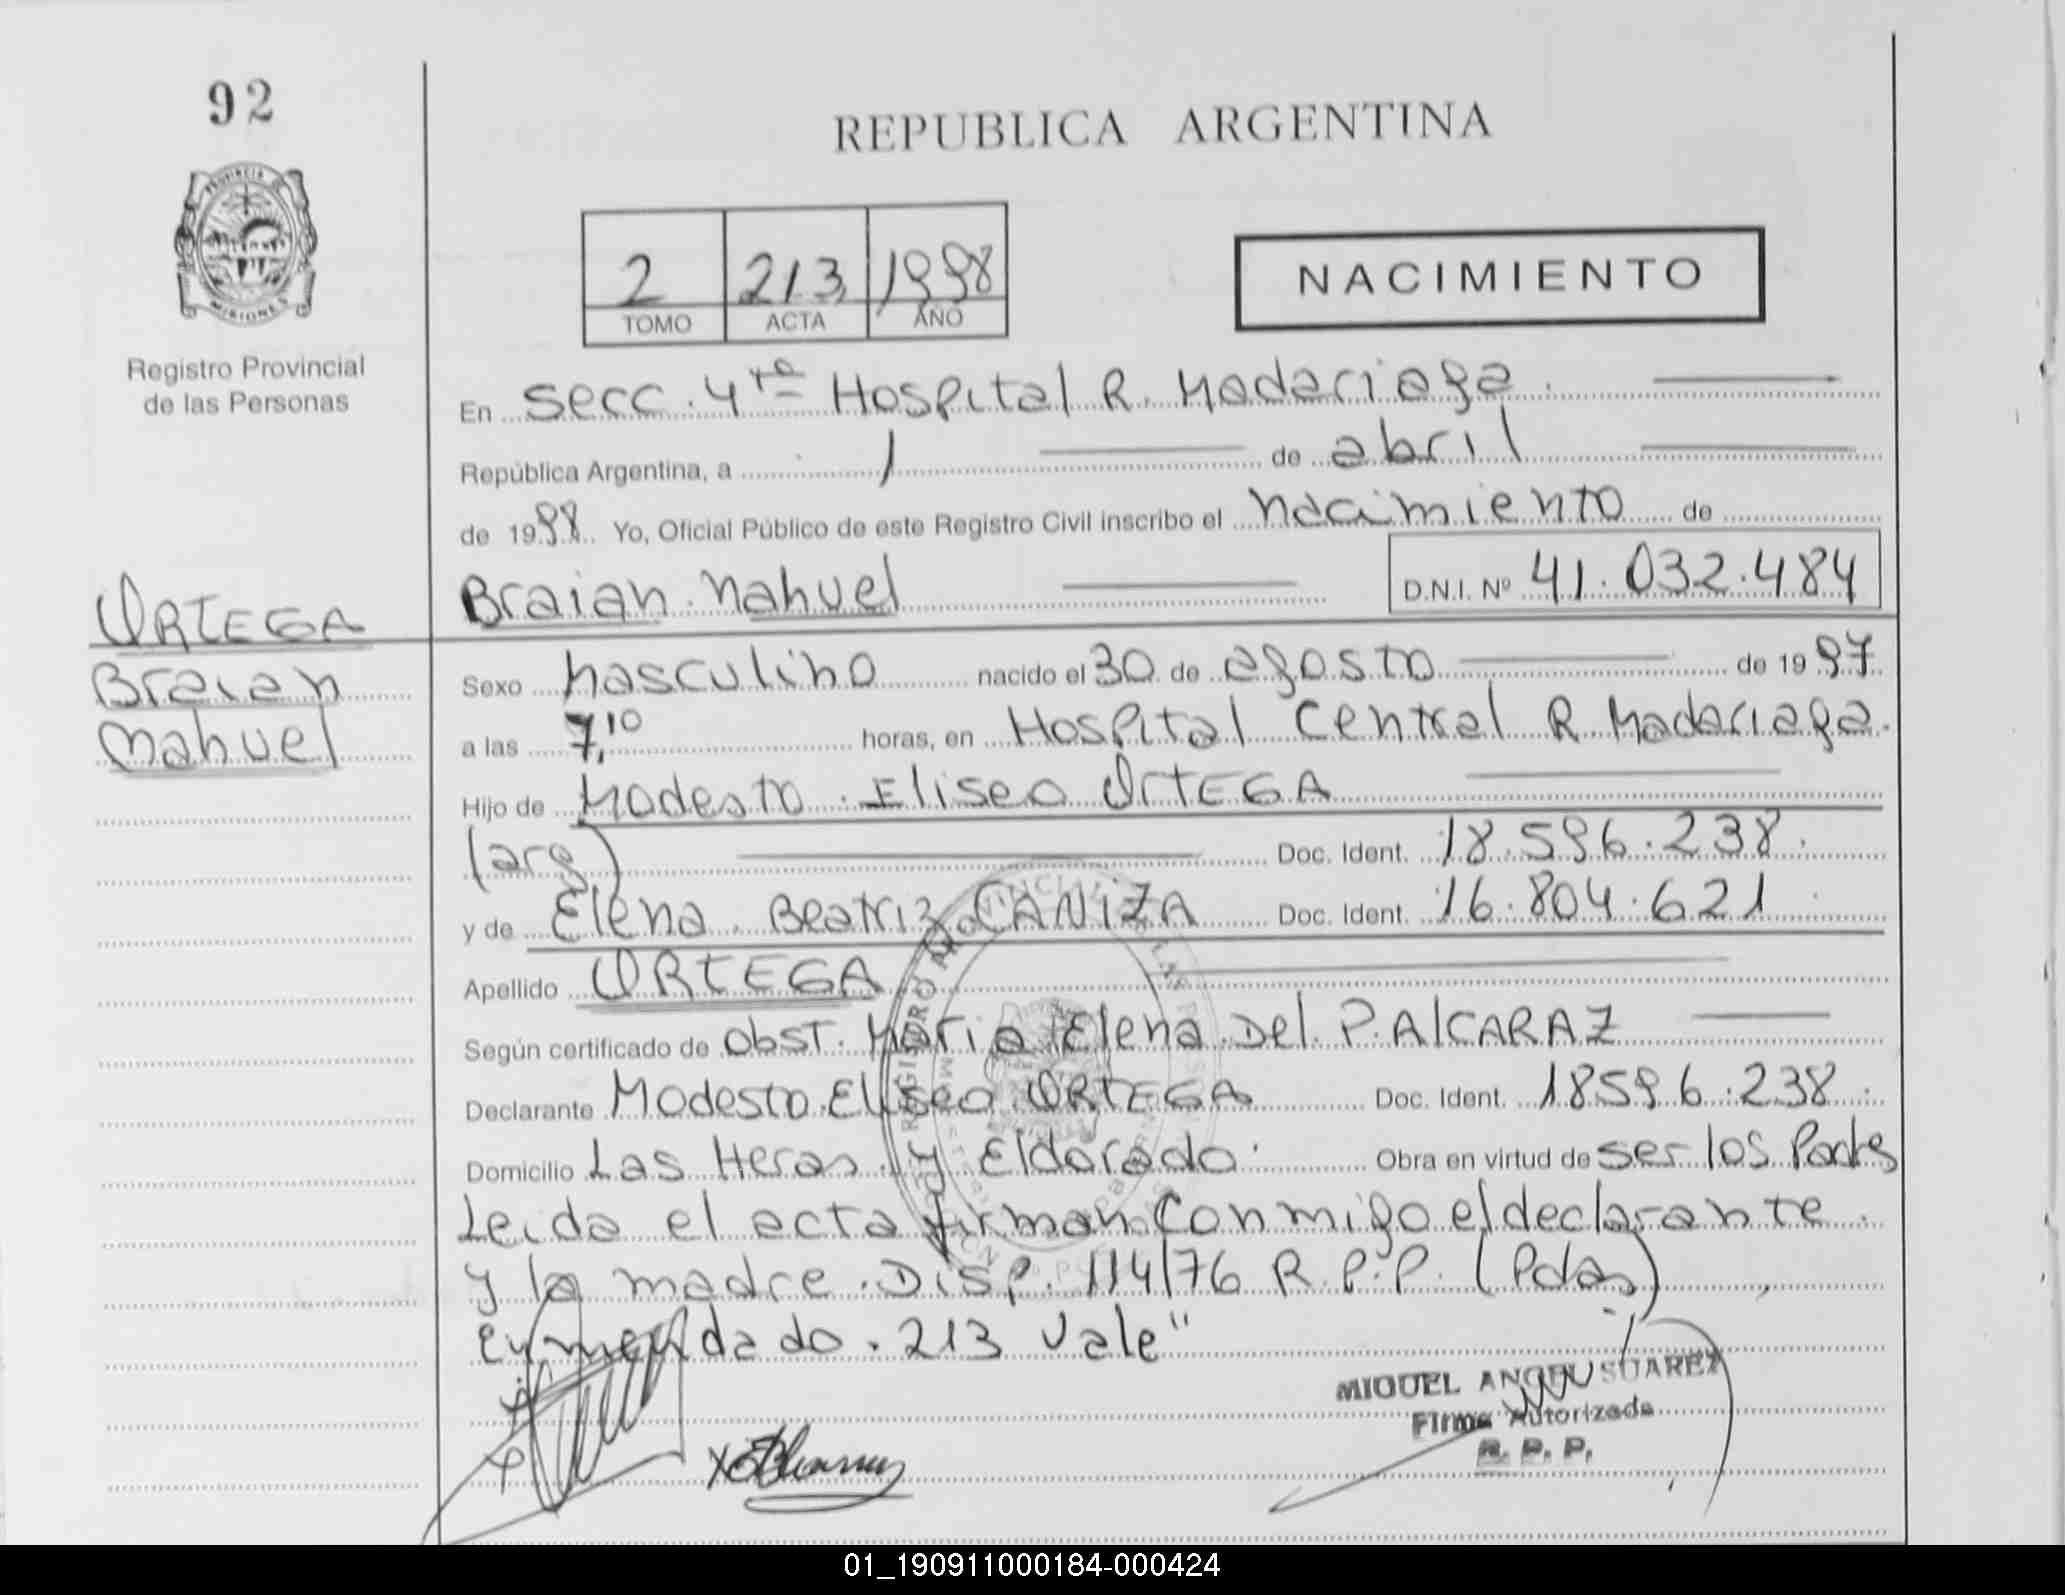 92
REPUBLICA ARGENTINA
PROVINCIA DE
MISIONES
Registro Provincial
de las Personas
2 213 1998
TOMO ACTA AÑO
NACIMIENTO
En Secc. 4ta Hospital R. Madariaga.
República Argentina, a 1 de abril
de 1998 Yo, Oficial Público de este Registro Civil inscribo el nacimiento de
Braian Nahuel D.N.I. Nº 41.032.484
ORTEGA
Braian
Nahuel
Sexo Masculino nacido el 30 de agosto de 1997
a las 7,10 horas, en Hospital Central R. Madariaga.
Hijo de Modesto Eliseo ORTEGA
(arg) Doc. Ident. 18.596.238.
y de Elena Beatriz CANIZA Doc. Ident. 16.804.621.
Apellido ORTEGA
Según certificado de Obst. Maria Elena Del P. AlCARAZ
Declarante Modesto Eliseo ORTEGA Doc. Ident. 18596.238.
Domicilio Las Heras y Eldorado. Obra en virtud de ser los Padres
Leida el acta firman conmigo el declarante
y la madre. Disp. 114/76 R.P.P. (Pdas)
enmendado. 213 Vale"
MIGUEL ANGEL SUAREZ
Firma Autorizada
R. P. P.
01_190911000184-000424